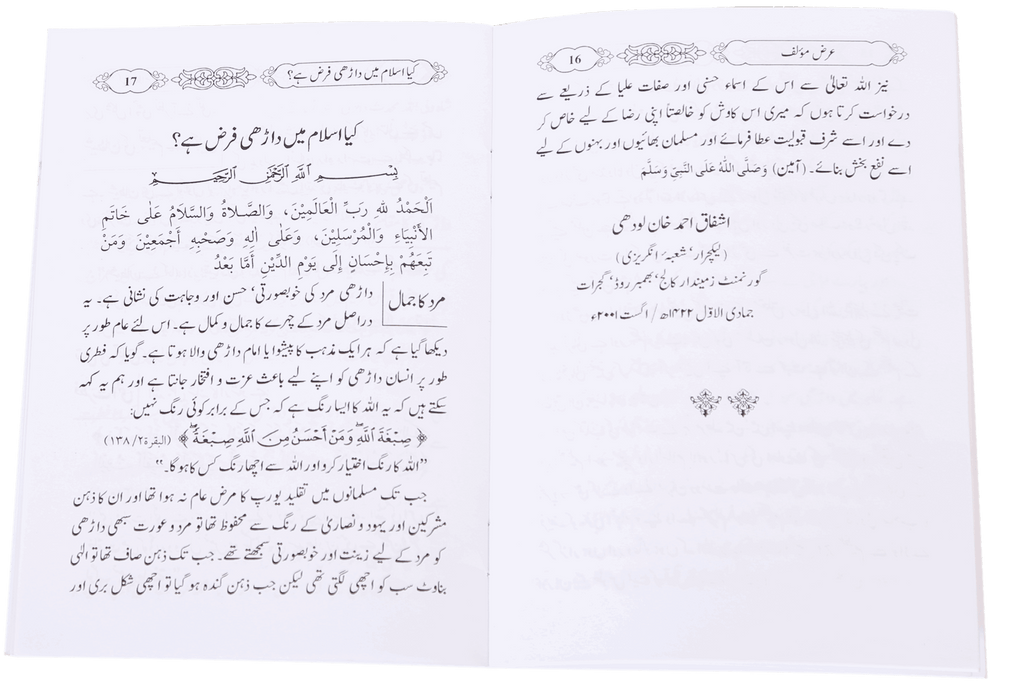 عرض مؤلف
16
نیز اللہ تعالیٰ سے اس کے اسماء حسنی اور صفات علیا کے ذریعے سے
درخواست کرتا ہوں کہ میری اس کاوش کو خالصتاً اپنی رضا کے لیے خاص کر
دے اور اسے شرف قبولیت عطا فرمائے اور مسلمان بھائیوں اور بہنوں کے لیے
اسے نفع بخش بنائے۔ (آمین) وَصَلَّى اللهُ عَلَى النَّبِيِّ وَسَلَّمَ
اشفاق احمد خان لودھی
(لیکچرار‘ شعبۂ انگریزی)
گورنمنٹ زمیندار کالج‘ بھمبر روڈ‘ گجرات
جمادی الاوّل ۱۴۲۲ھ / اگست ۲۰۰۱ء
کیا اسلام میں داڑھی فرض ہے؟
17
کیا اسلام میں داڑھی فرض ہے؟
بِسْمِ اللهِ الرَّحْمٰنِ الرَّحِيْمِ
اَلْحَمْدُ للهِ رَبِّ الْعَالَمِيْنَ، وَالصَّلاَةُ وَالسَّلاَمُ عَلٰى خَاتَمِ
الأَنْبِيَاءِ وَالْمُرْسَلِيْنَ، وَعَلٰى اٰلِهِ وَصَحْبِهِ أَجْمَعِيْنَ وَمَنْ
تَبِعَهُمْ بِإِحْسَانٍ إِلٰى يَوْمِ الدِّيْنِ أَمَّا بَعْدُ
مرد کا جمال
داڑھی مرد کی خوبصورتی‘ حسن اور وجاہت کی نشانی ہے۔ یہ
دراصل مرد کے چہرے کا جمال و کمال ہے۔ اس لئے عام طور پر
دیکھا گیا ہے کہ ہر ایک مذہب کا پیشوا یا امام داڑھی والا ہوتا ہے۔ گویا کہ فطری
طور پر انسان داڑھی کو اپنے لیے باعث عزت و افتخار جانتا ہے اور ہم یہ کہہ
سکتے ہیں کہ یہ اللہ کا ایسا رنگ ہے کہ جس کے برابر کوئی رنگ نہیں:
﴿ صِبْغَةَ اللّٰهِ وَمَنْ أَحْسَنُ مِنَ اللّٰهِ صِبْغَةً ﴾ (البقرة ۲/ ۱۳۸)
”اللہ کا رنگ اختیار کرو اور اللہ سے اچھا رنگ کس کا ہو گا۔“
جب تک مسلمانوں میں تقلید یورپ کا مرض عام نہ ہوا تھا اور ان کا ذہن
مشرکین اور یہود و نصاریٰ کے رنگ سے محفوظ تھا تو مرد و عورت سبھی داڑھی
کو مرد کے لیے زینت اور خوبصورتی سمجھتے تھے۔ جب تک ذہن صاف تھا تو الٰہی
بناوٹ سب کو اچھی لگتی تھی لیکن جب ذہن گندہ ہو گیا تو اچھی شکل بری اور